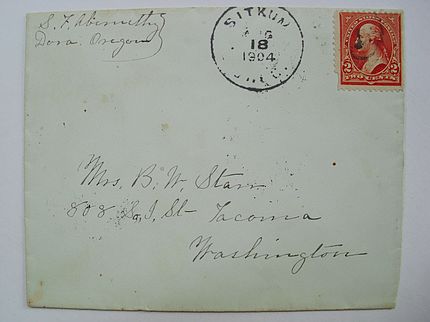 S. F. Abernethy
Dora Oregon
SITKUM
AUG
18
1904
OREG.
2 TWO CENTS 2
Mrs. B. W. Starr
808 So. I. St- Tacoma
Washington